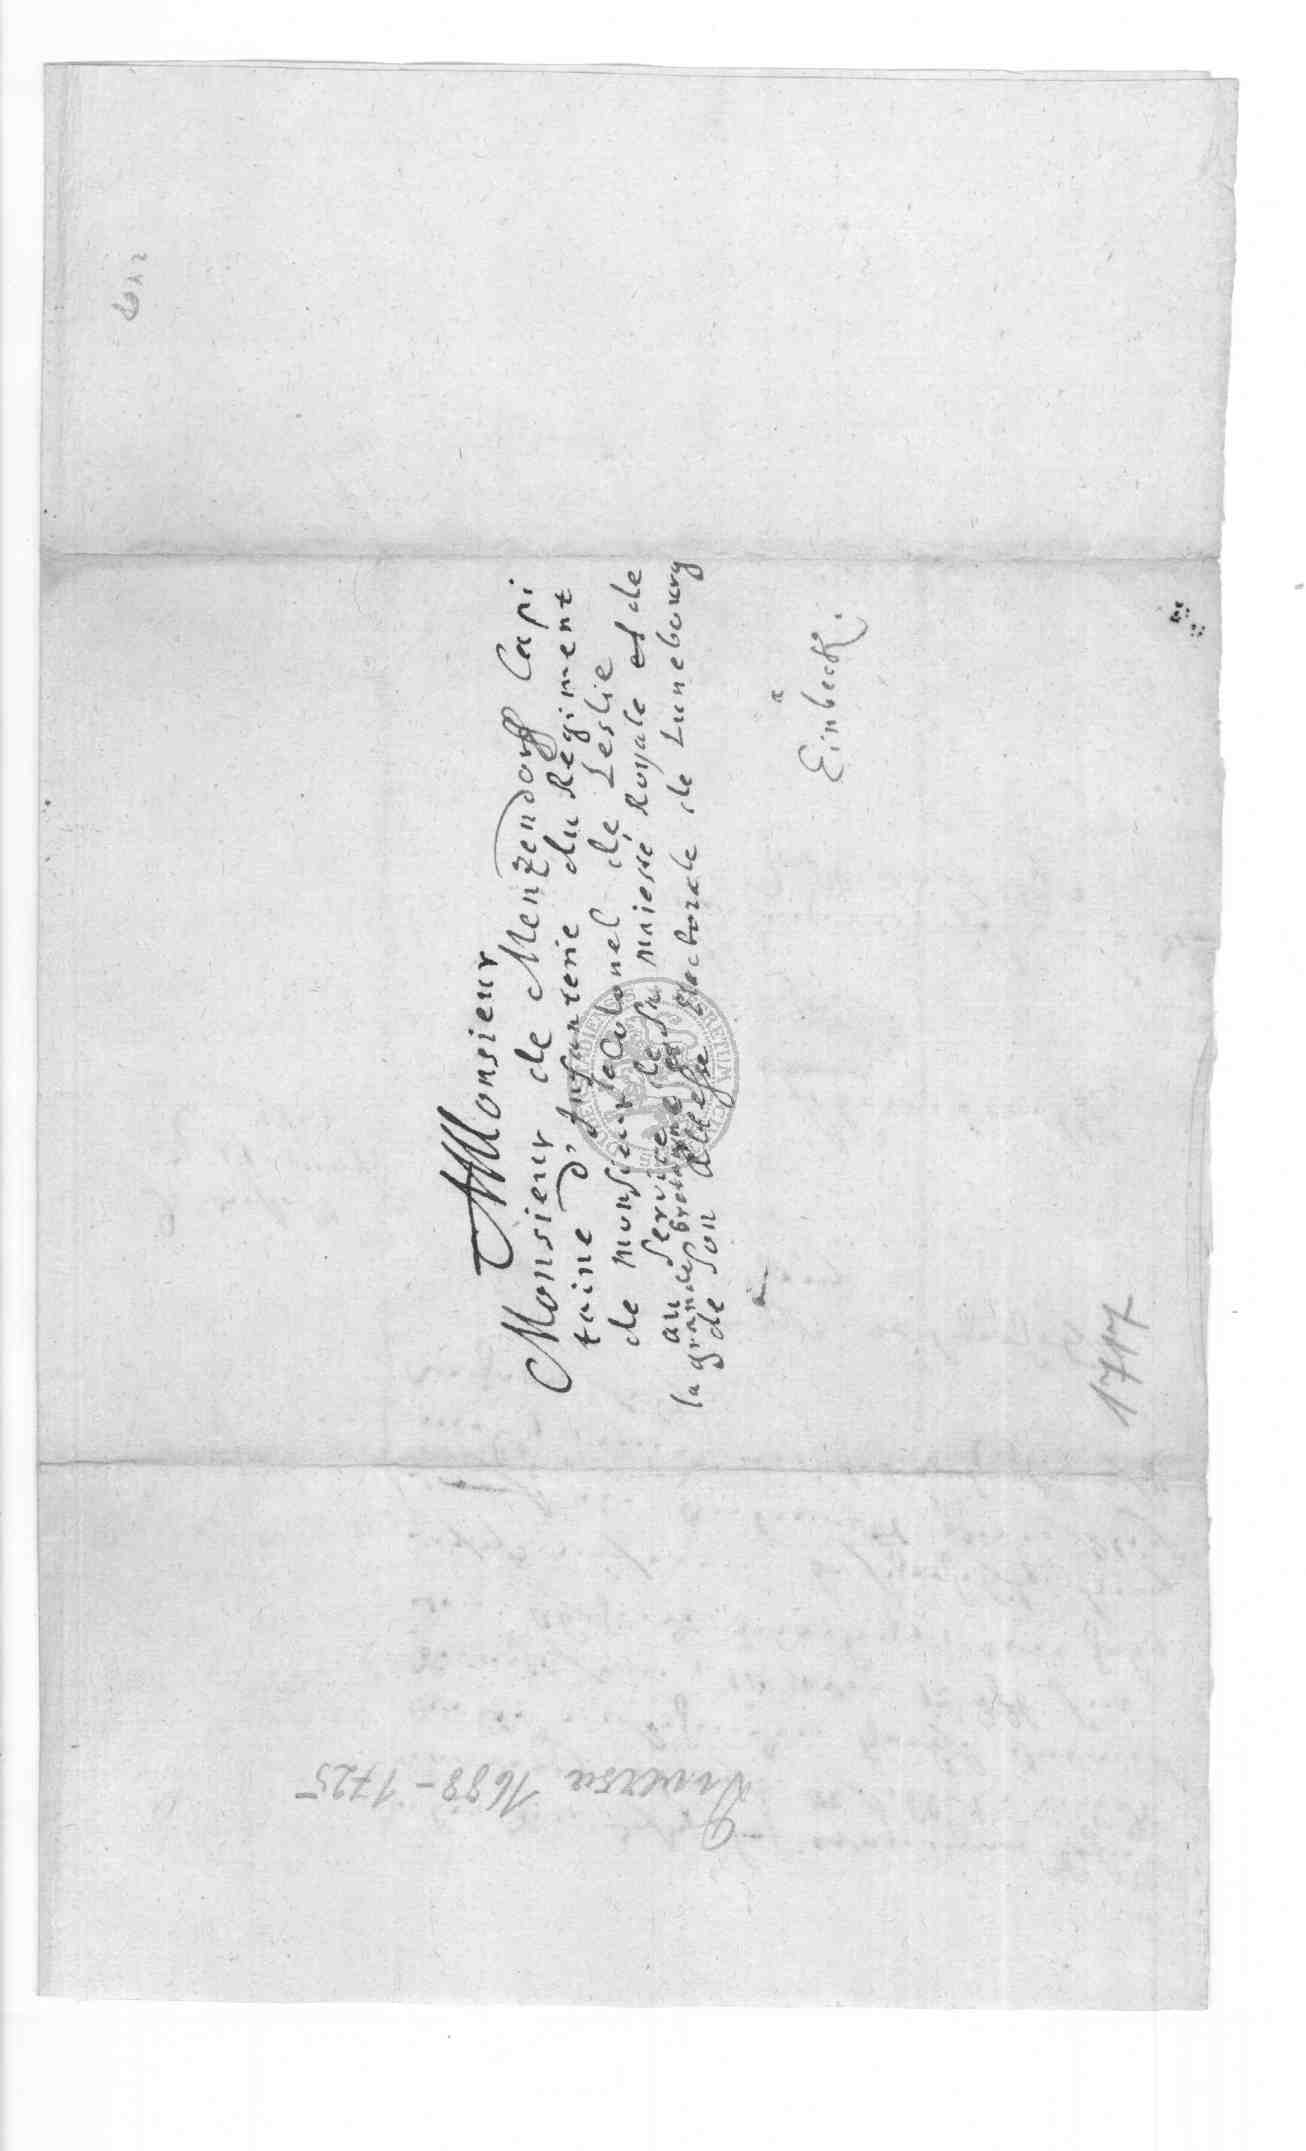 Monsieur
Monsieur de Menzendorff Capi
taine d'Infanterie du Regiment
de monsieur le Colonel de Leslie
au service de sa maiesté Royale et de
la grande bretagne et
de son Altesse Electorale de Luneburg
a
a
Einbeck.
1717
Diversa 1688-1725